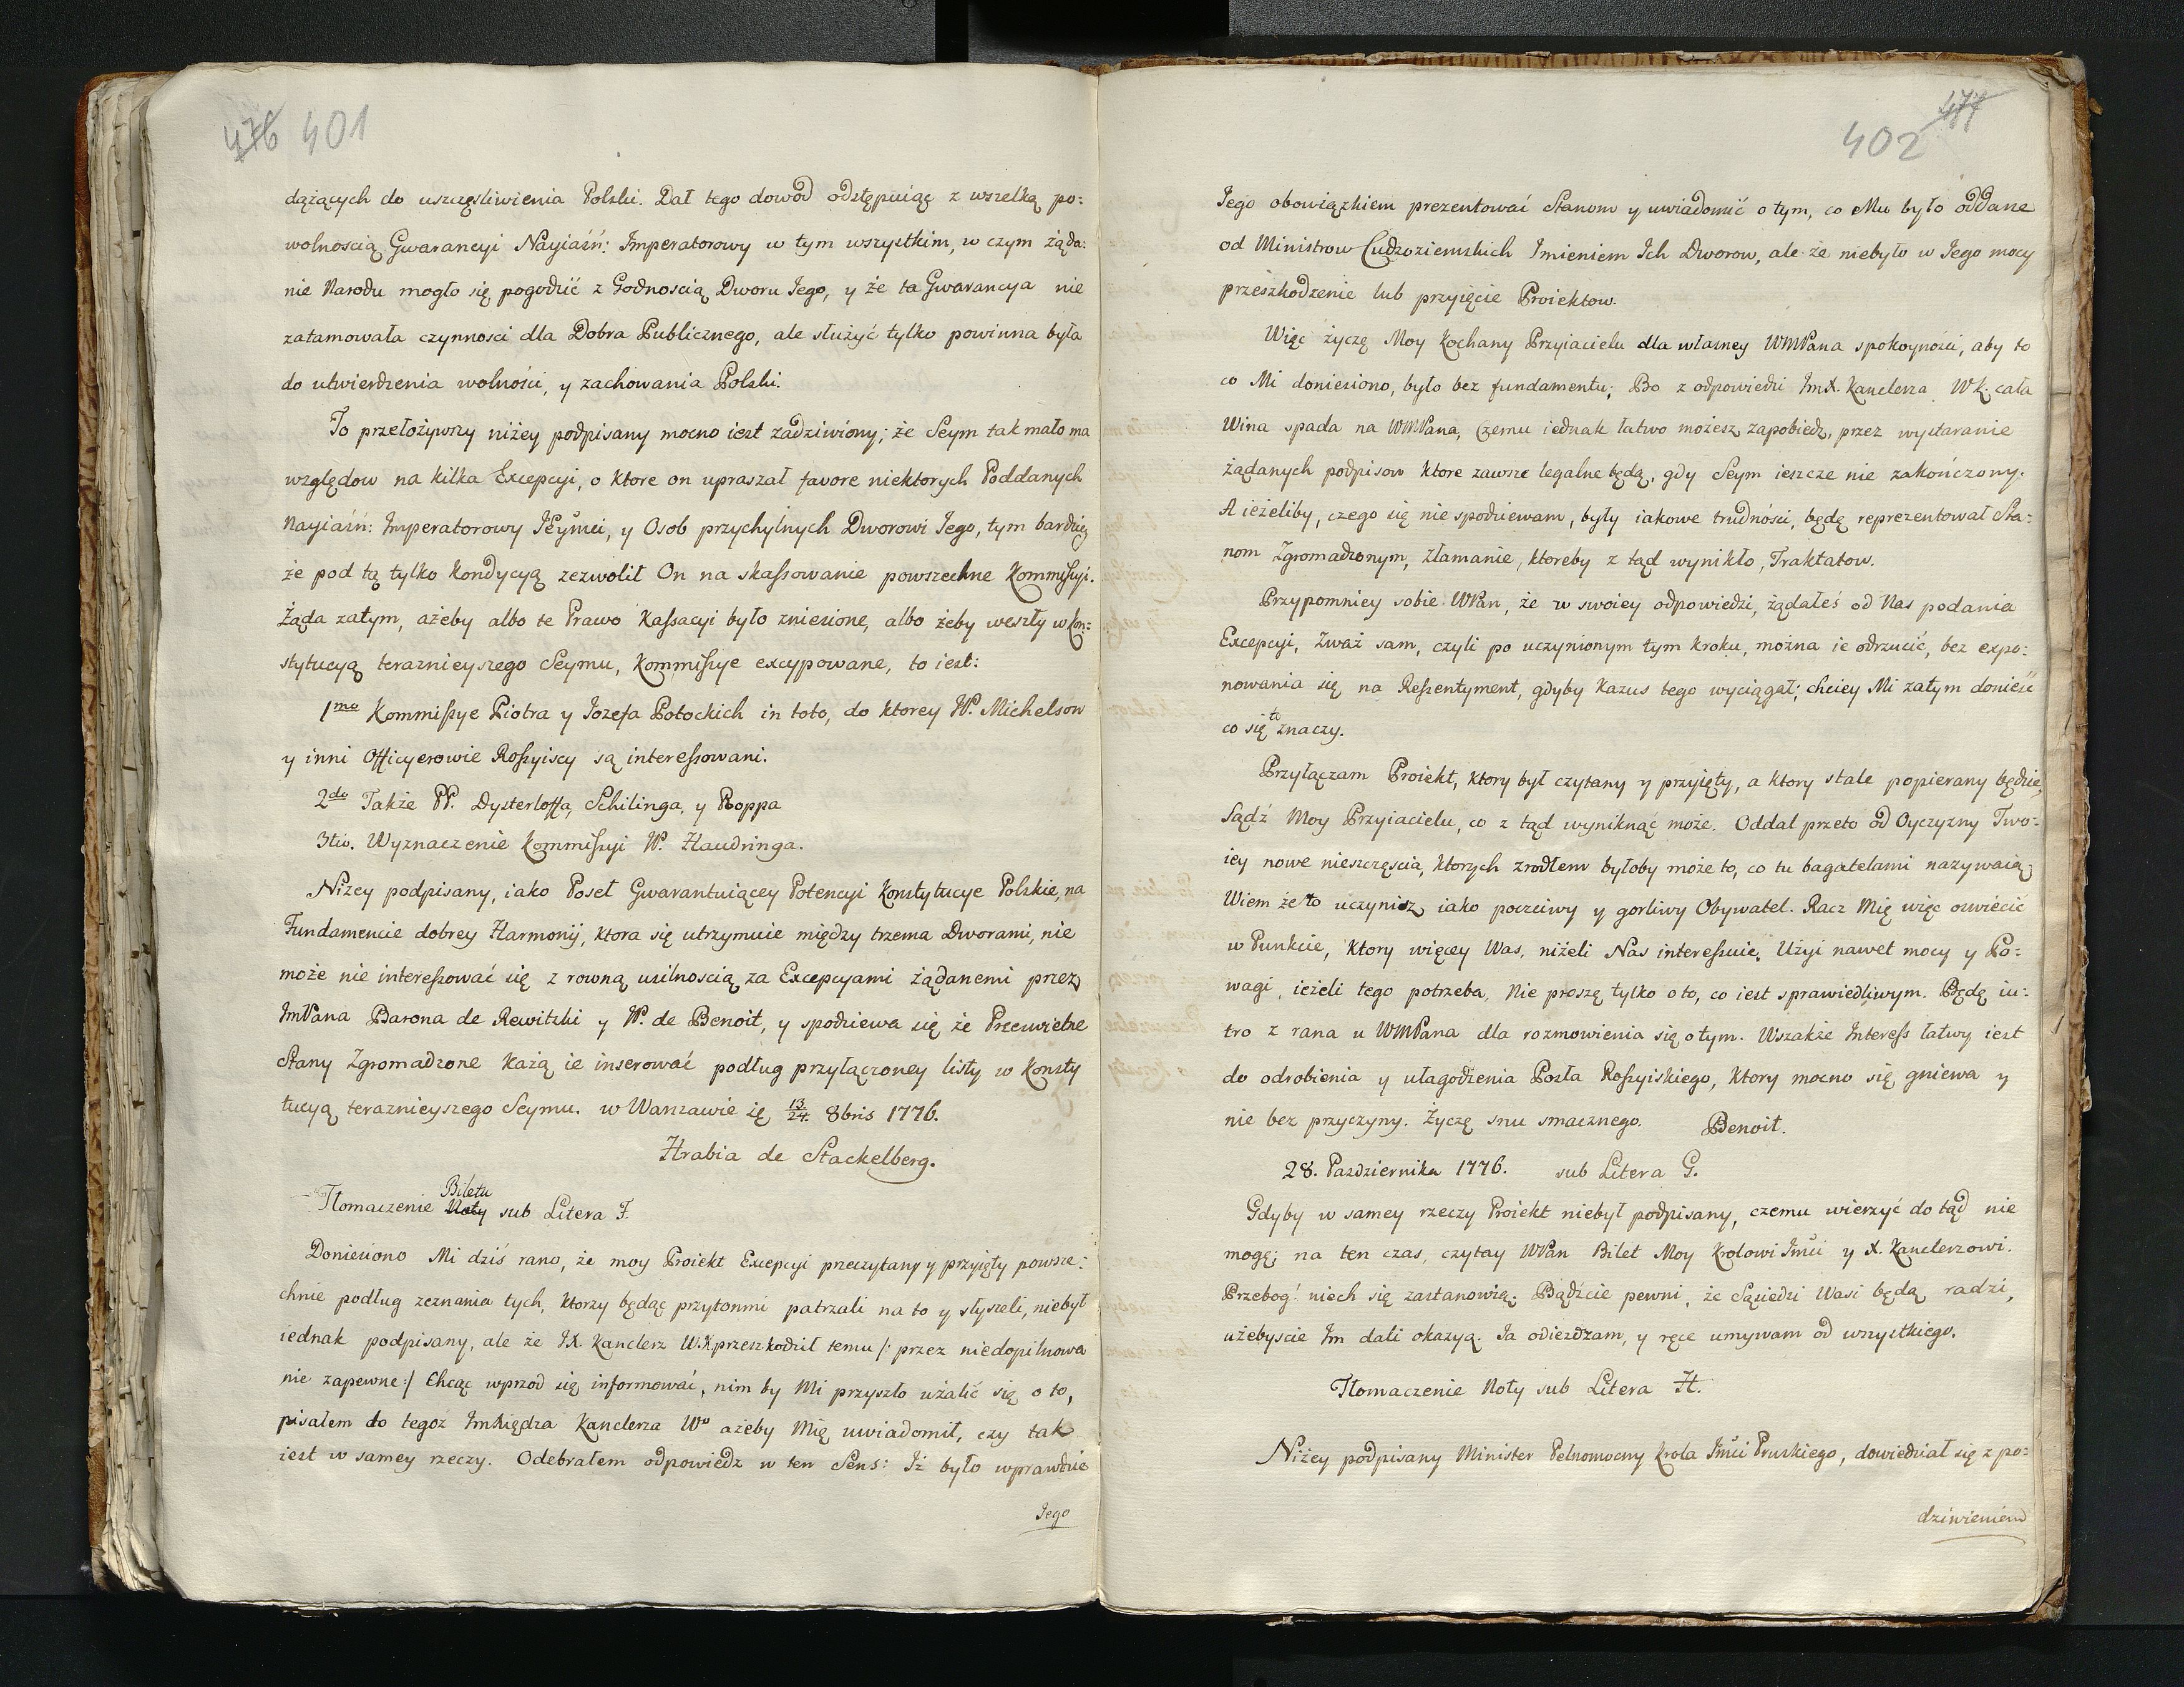 476 401
dążących do uszczęsliwienia Polski. Dał tego dowod odstępuiąc z wszelką po:
wolnoscią Gwarancyi Nayiaśń: Imperatorowy w tym wszystkim, w czym żąda:
nie Narodu mogło się pogodzić z Godnoscią Dworu Jego, y że ta Gwarancya nie
zatamowała czynnosci dla Dobra Publicznego, ale służyć tylko powinna była
do utwierdzenia wolności, y zachowania Polski.
To przełożywszy niżey podpisany mocno iest zadziwiony; że Seym tak mało ma
względow na kilka Excepcyi, o ktore on upraszał favore niektorych Poddanych
Nayiaśń: Imperatorowy Jeymci, y Osob przychylnych Dworowi Jego, tym bardziey
że pod tą tylko kondycyą zezwolił On na skassowanie powszechne Kommissyi.
Żąda zatym, ażeby albo te Prawo Kassacyi było zniesione, albo żeby weszły w Kon:
stytucyą teraznieyszego Seymu, Kommissye excypowane, to iest:
1mo Kommissye Piotra y Jozefa Potockich in toto, do ktorey W. Michelsow
y inni Officyerowie Rossyiscy są interessowani.
2do Także PP. Dysterloffa, Schilinga, y Roppa
3tio. Wyznaczenie Kommissyi W. Haudringa.
Niżey podpisany, iako Poseł Gwarantuiącey Potencyi Konstytucye Polskie, na
Fundamencie dobrey Harmonij, ktora się utrzymuie między trzema Dworami, nie
może nie interessować się z rowną usilnoscią za Excepcyami żądanemi przez
ImPana Barona de Rewitzki y W. de Benoit, y spodziewa się że Przeswietne
Stany Zgromadzone każą ie inserować podług przyłączoney listy w Konsty
tucyą teraznieyszego Seymu. w Warszawie 13/24. 8bris 1776.
Hrabia de Stackelberg.
Biletu
Tłomaczenie Noty sub Litera F.
Doniesiono Mi dziś rano, że moy Proiekt Excepcyi przeczytany y przyięty powsze:
chnie podług zeznania tych, ktorzy będąc przytomni patrzali na to y słyszeli, niebył
iednak podpisany, ale że JX. Kanclerz W.K. przeszkodził temu /: przez niedopilnowa
nie zapewne :/ Chcąc wprzod się informować, nim by Mi przyszło użalić się o to,
pisałem do tegoż ImXiędza Kanclerza Wo ażeby Mię uwiadomił, czy tak
iest w samey rzeczy. Odebrałem odpowiedz w ten Sens: Iż było wprawdzie
Jego
477
402
Jego obowiązkiem prezentować Stanom y uwiadomić o tym, co Mu było oddane
od Ministrow Cudzoziemskich Imieniem Ich Dworow, ale że niebyło w Jego mocy
przeszkodzenie lub przyięcie Proiektow.
Więc życzę Moy Kochany Przyiacielu dla własney WMPana spokoyności, aby to
co Mi doniesiono, było bez fundamentu; Bo z odpowiedzi ImX. Kanclerza WK. cała
Wina spada na WMPana, Czemu iednak łatwo możesz zapobiedz, przez wystaranie
żądanych podpisow ktore zawsze legalne będą, gdy Seym ieszcze nie zakończony.
A ieżeliby, czego się nie spodziewam, były iakowe trudności, będę reprezentował Sta:
nom Zgromadzonym, złamanie, ktoreby z tąd wynikło, Traktatow.
Przypomniey sobie WPan, że w swoiey odpowiedzi, żądałeś od Nas podania
Excepcyi, Zważ sam, czyli po uczynionym tym kroku, można ie odrzucić, bez expo:
nowania się na Ressentyment, gdyby kazus tego wyciągał; chciey Mi zatym donieść
co się to znaczy.
Przyłączam Proiekt, ktory był czytany y przyięty, a ktory stale popierany będzie,
Sądź Moy Przyiacielu, co z tąd wyniknąć może. Oddal przeto od Oyczyzny Two:
iey nowe nieszczęscia, ktorych zrodłem byłoby może to, co tu bagatelami nazywaią;
Wiem że to uczynisz iako poczciwy y gorliwy Obywatel. Racz Mię więc oswiecić
w Punkcie, ktory więcey Was, niżeli Nas interessuie, Użyi nawet mocy y Po:
wagi, ieżeli tego potrzeba, Nie proszę tylko o to, co iest sprawiedliwym. Będę iu:
tro z rana u WMPana dla rozmowienia się o tym. Wszakże Interess łatwy iest
do odrobienia y ułagodzenia Posła Rossyiskiego, ktory mocno się gniewa y
nie bez przyczyny. Życzę snu smacznego. Benoit.
28. Pazdziernika 1776. sub Litera G.
Gdyby w samey rzeczy Proiekt niebył podpisany, czemu wierzyć do tąd nie
mogę; na ten czas, czytay WPan Bilet Moy Krolowi Jmći y X. Kanclerzowi.
Przebog! niech się zastanowią. Bądźcie pewni, że Sąsiedzi Wasi będą radzi,
użebyscie Im dali okazyą. Ja odiezdzam, y ręce umywam od wszystkiego.
Tłomaczenie Noty sub Litera H.
Niżey podpisany Minister Pełnomocny Krola Jmći Pruskiego, dowiedział się z po:
dziwieniem